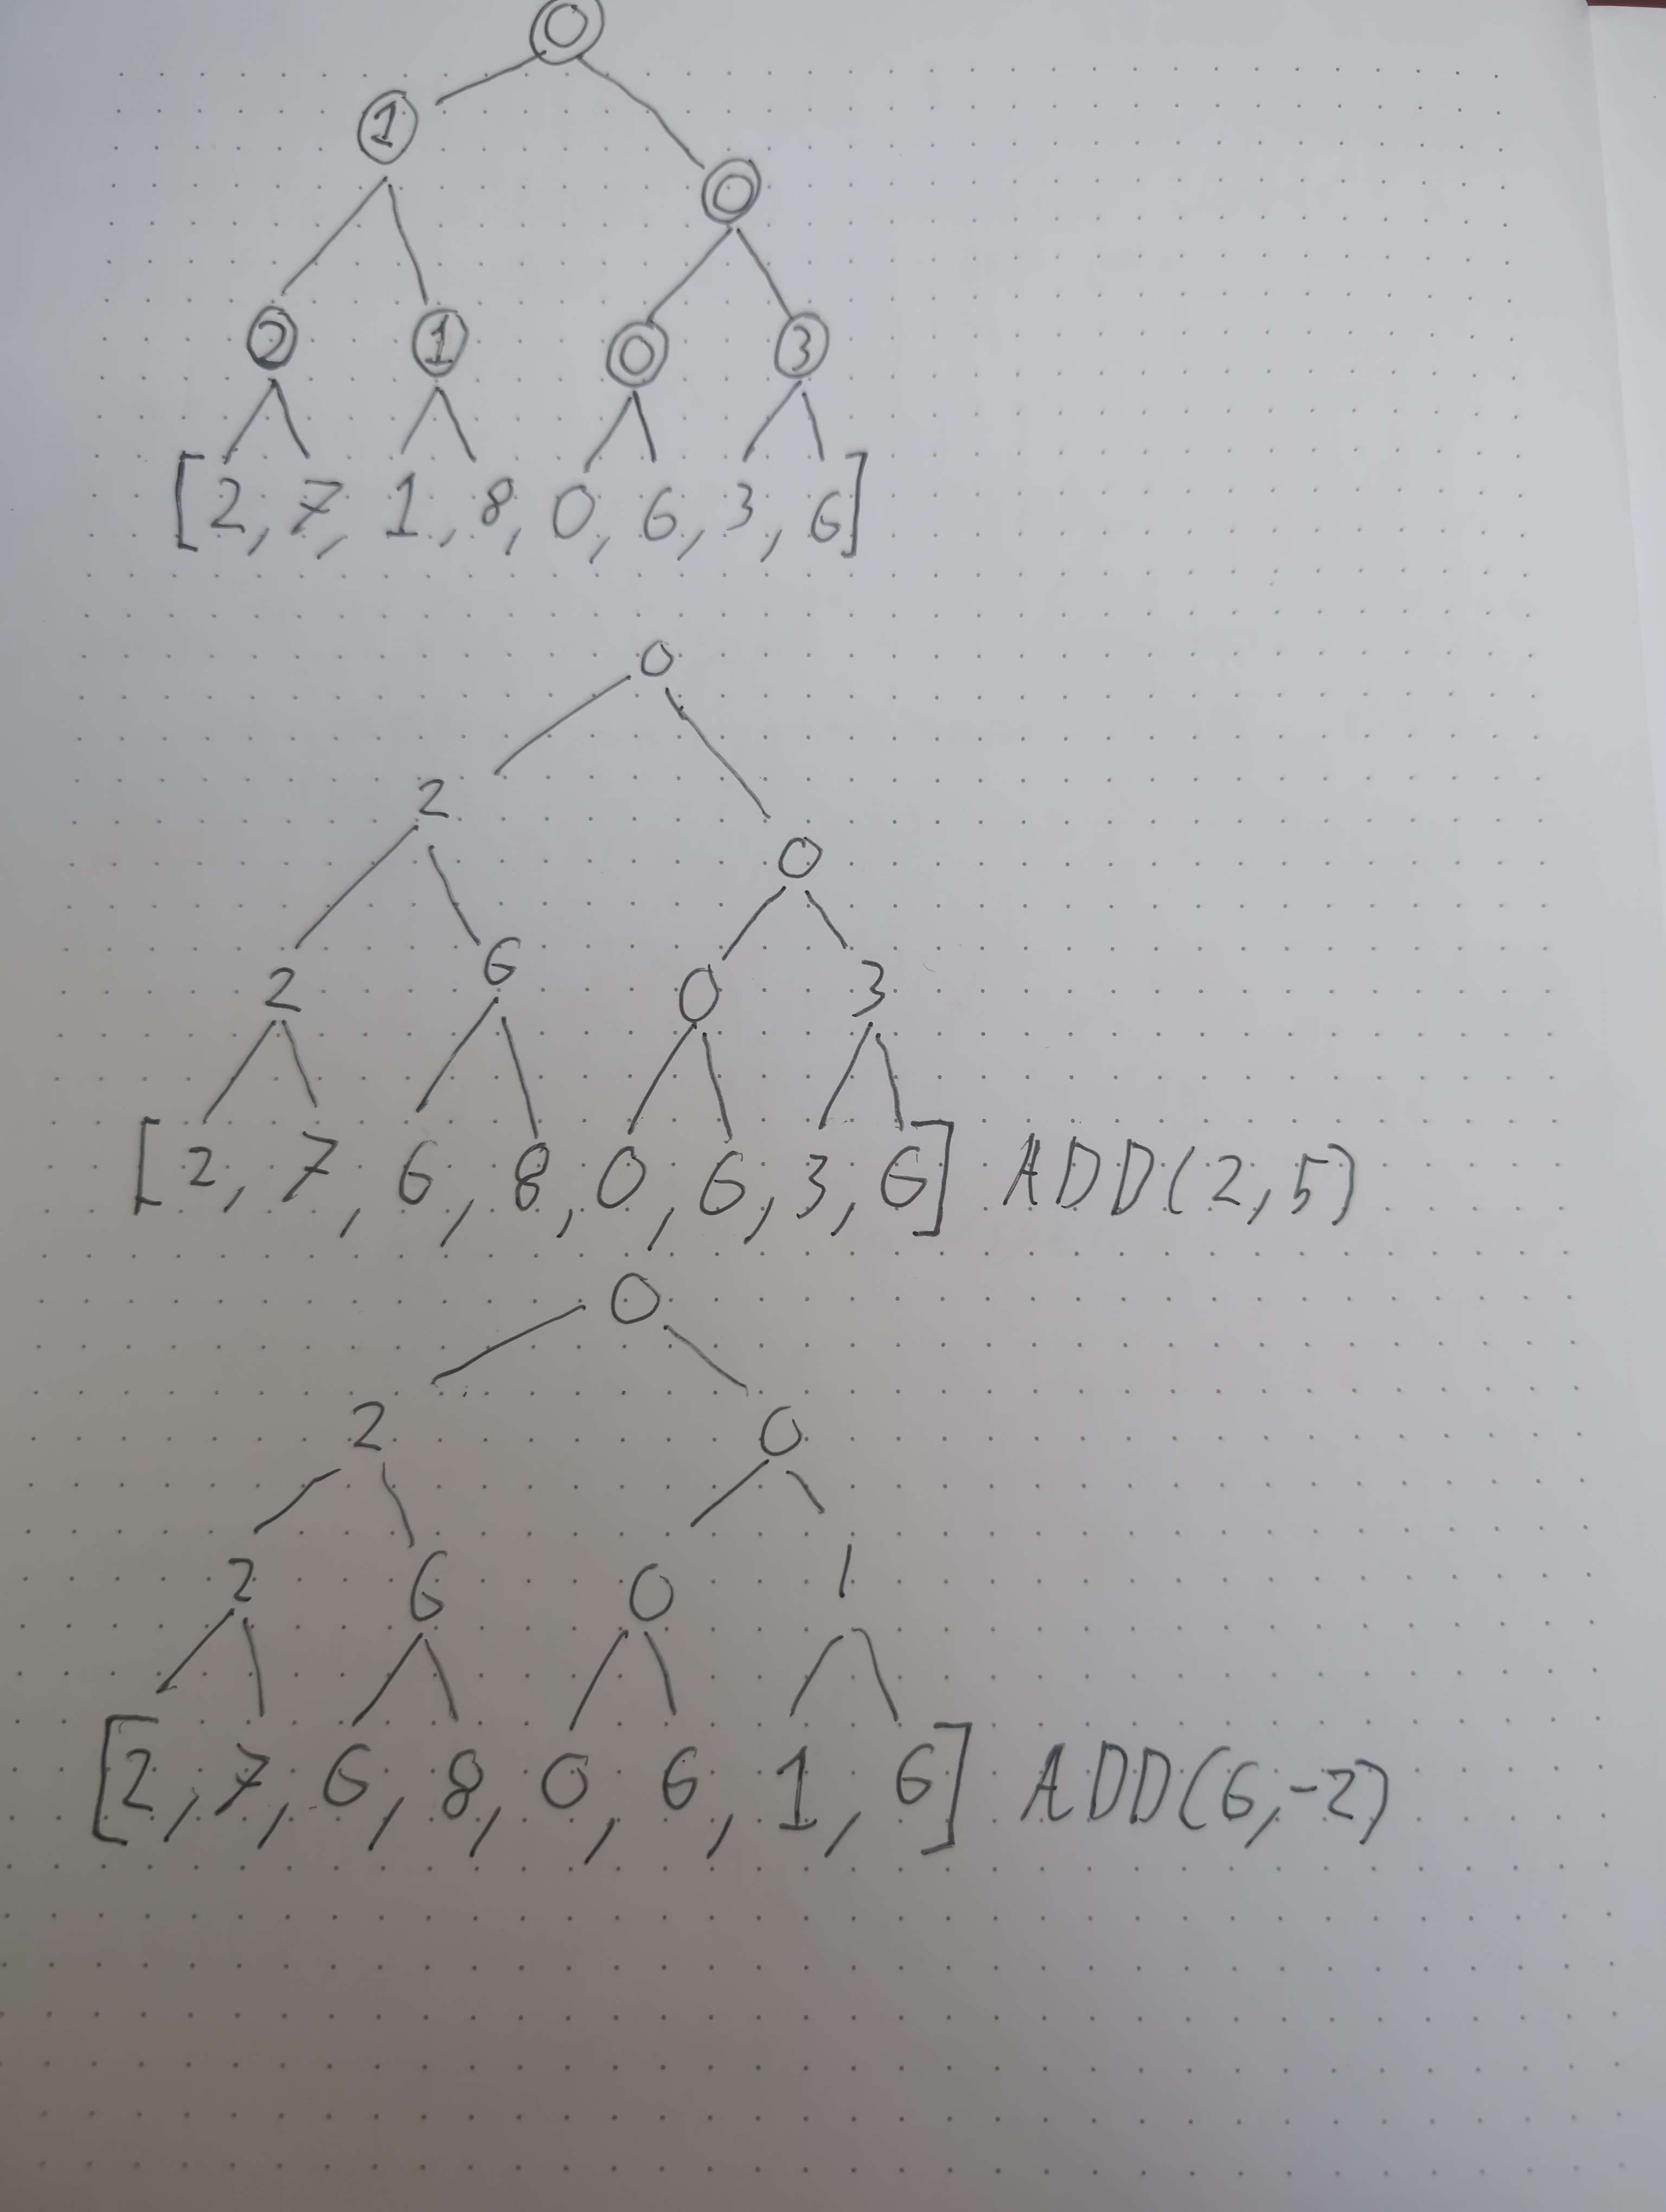 0
1 0
2 1 0 3
[2, 7, 1, 8, 0, 6, 3, 6]
0
2
0
2 6 0 3
[2, 7, 6, 8, 0, 6, 3, 6] ADD(2,5)
0
2 0
2 6 0 1
[2, 7, 6, 8, 0, 6, 1, 6] ADD(6,-2)